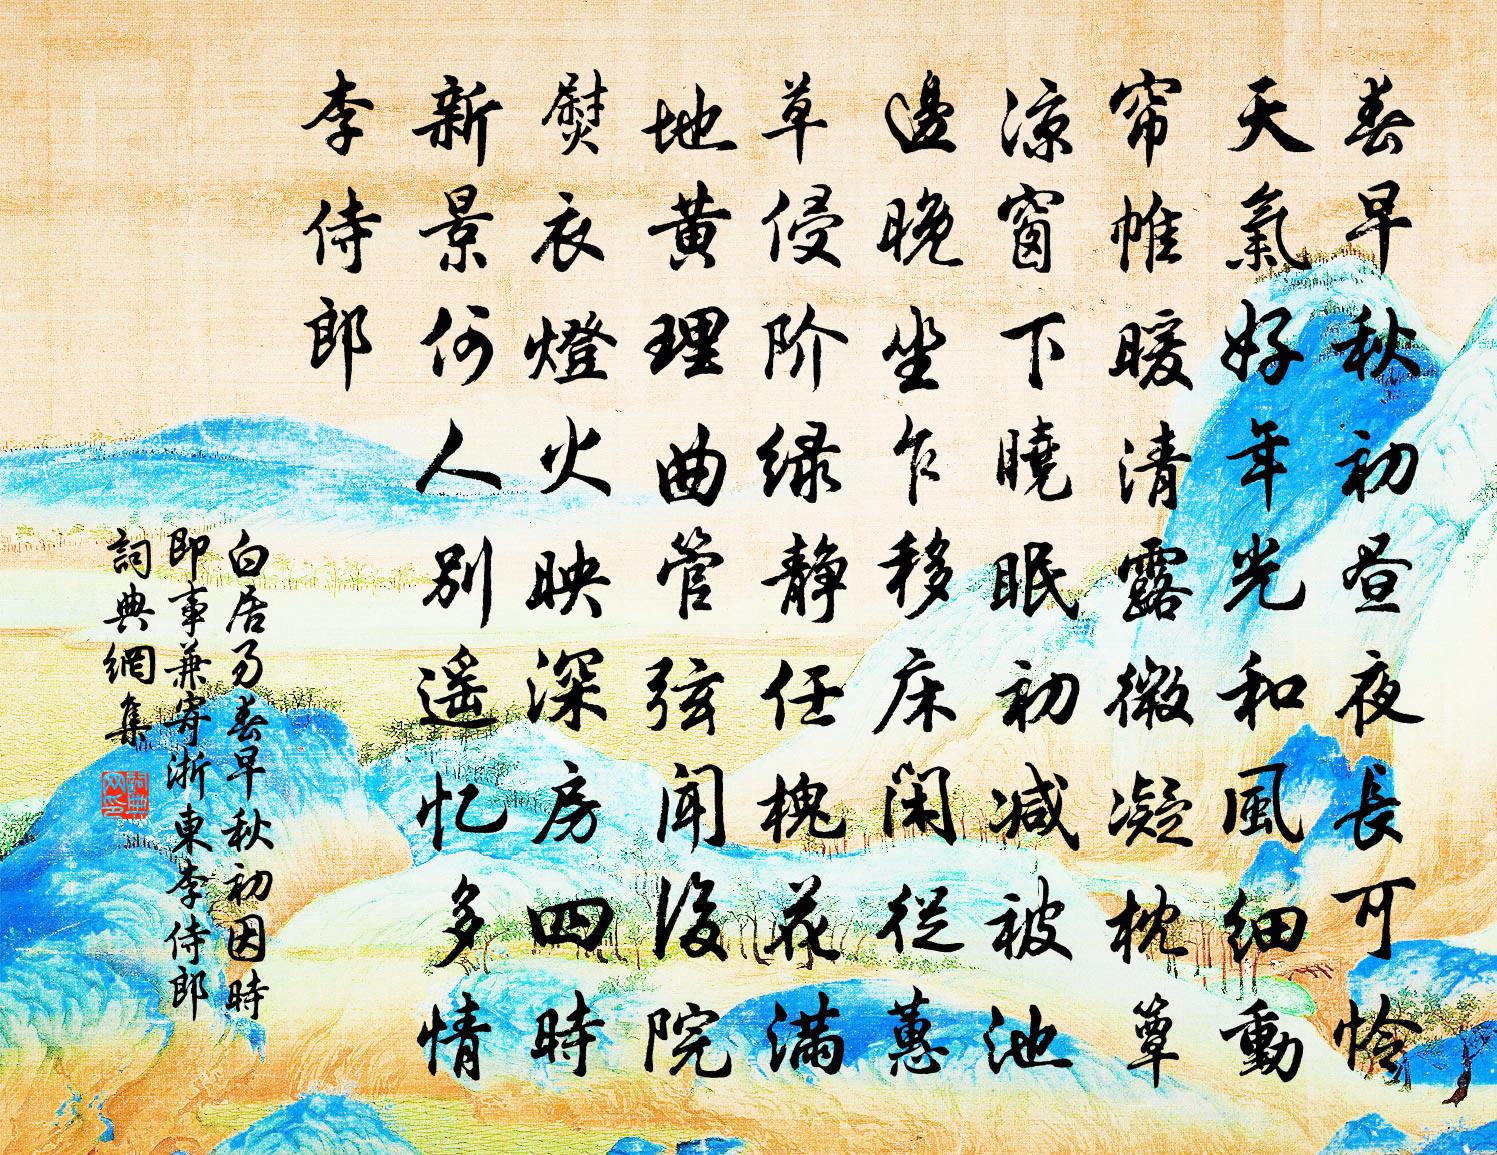 春早秋初昼夜長可怜
天氣好年光和風細動
帘帷暖清露微凝枕簟
涼窗下曉眠初减被池
邊晚坐乍移床闲從蕙
草侵阶绿静任槐花满
地黄理曲管弦闻後院
熨衣燈火映深房四時
新景何人别遥忆多情
李侍郎
白居易春早秋初因時
即事兼寄浙東李侍郎
詞典網集